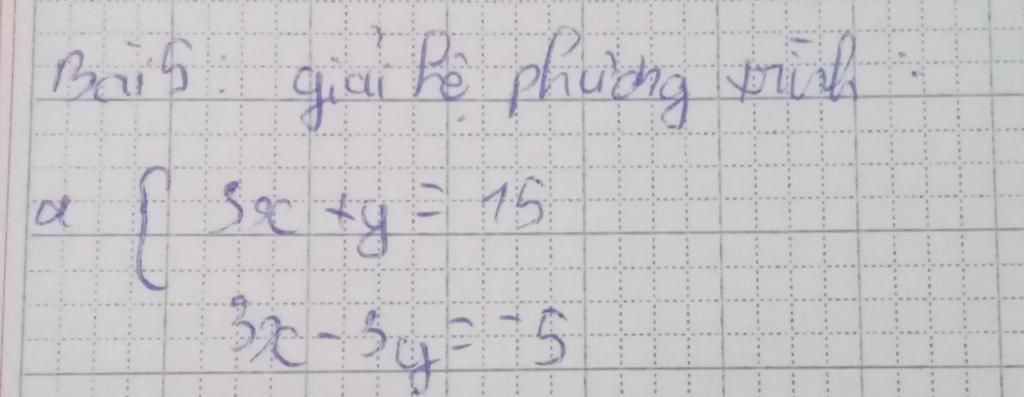 Bài 5: giải hệ phương trình:
a { 3x + y = 15
3x - 3y = -5